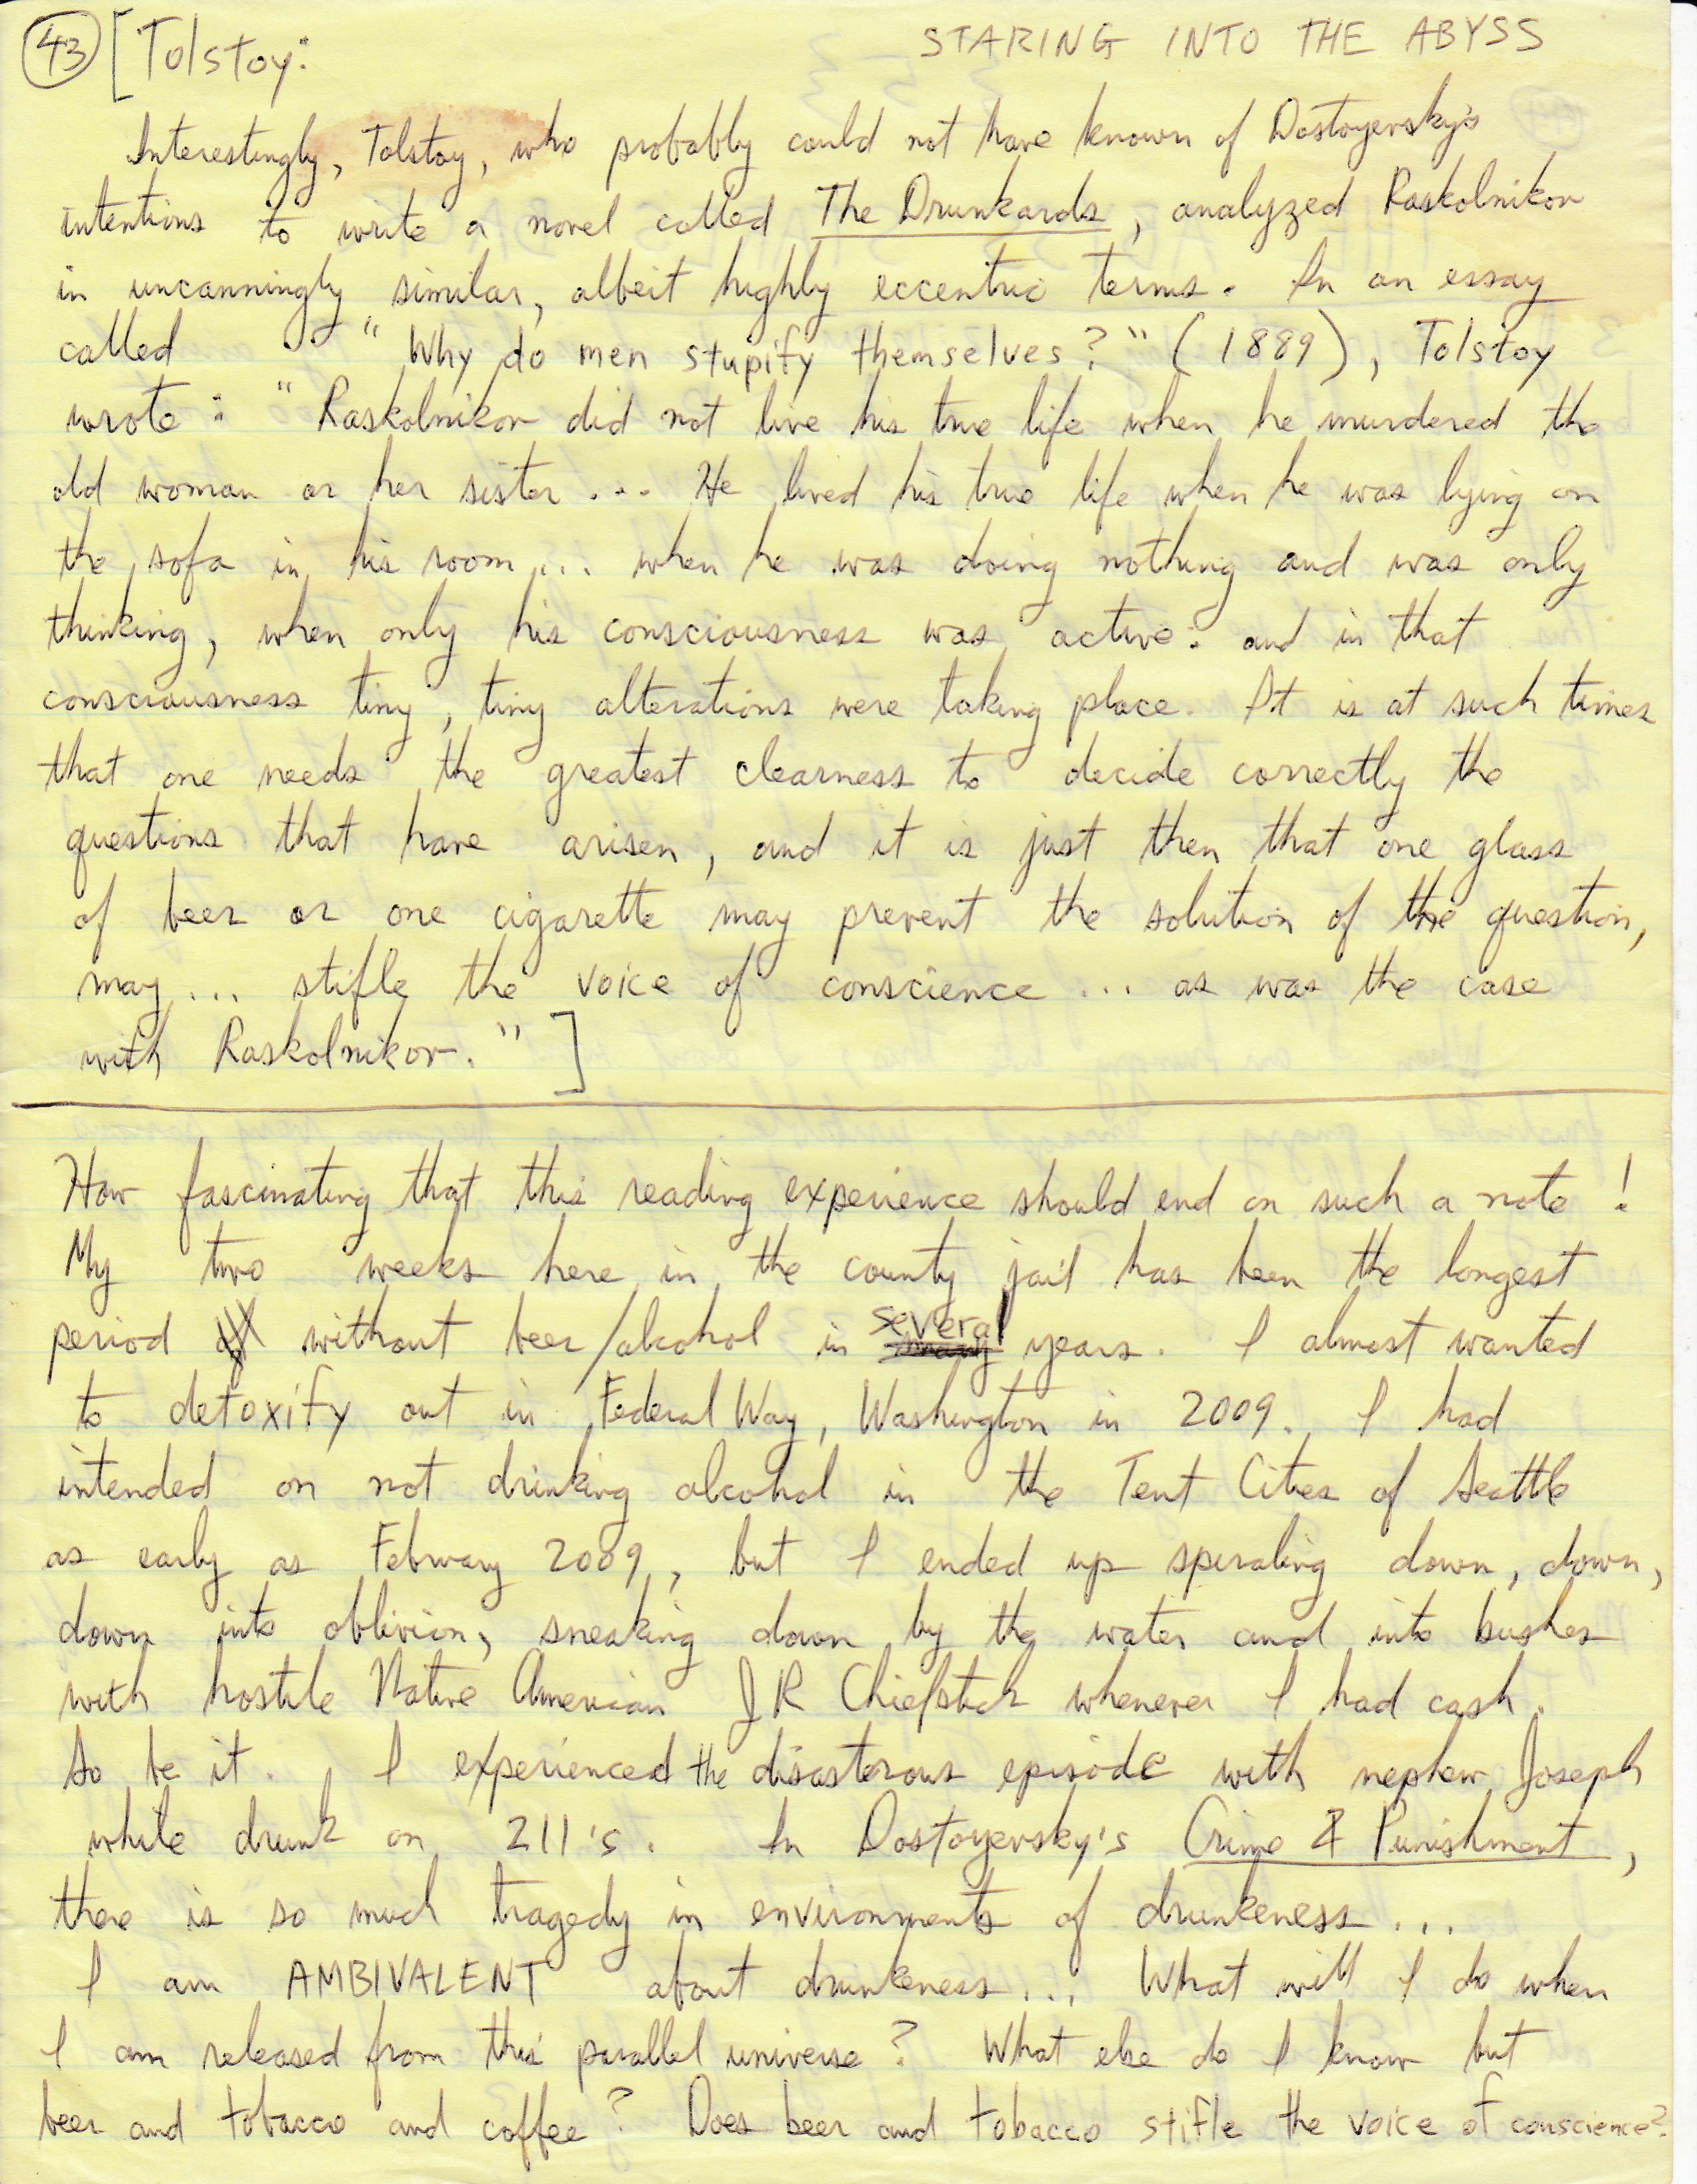 43 [Tolstoy: STARING INTO THE ABYSS
Interestingly, Tolstoy, who probably could not have known of Dostoyevsky's
intentions to write a novel called The Drunkards, analyzed Raskolnikov
in uncanningly similar, albeit highly eccentric terms. In an essay
called "Why do men stupify themselves?" (1889), Tolstoy
wrote: "Raskolnikov did not live his true life when he murdered the
old woman or her sister... He lived his true life when he was lying on
the sofa in his room... when he was doing nothing and was only
thinking, when only his consciousness was active: and in that
consciousness tiny, tiny alterations were taking place. It is at such times
that one needs the greatest clearness to decide correctly the
questions that have arisen, and it is just then that one glass
of beer or one cigarette may prevent the solution of the question,
may... stifle the voice of conscience... as was the case
with Raskolnikov." ]
How fascinating that this reading experience should end on such a note!
My two weeks here in the county jail has been the longest
period without beer/alcohol in several years. I almost wanted
to detoxify out in Federal Way, Washington in 2009. I had
intended on not drinking alcohol in the Tent Cities of Seattle
as early as February 2009, but I ended up spiraling down, down,
down into oblivion, sneaking down by the water and into bushes
with hostile Native American JR Chiefstick whenever I had cash.
So be it. I experienced the disasterous episode with nephew Joseph
while drunk on 211's. In Dostoyevsky's Crime & Punishment,
there is so much tragedy in environments of drunkeness...
I am AMBIVALENT about drunkeness... What will I do when
I am released from this parallel universe? What else do I know but
beer and tobacco and coffee? Does beer and tobacco stifle the voice of conscience?